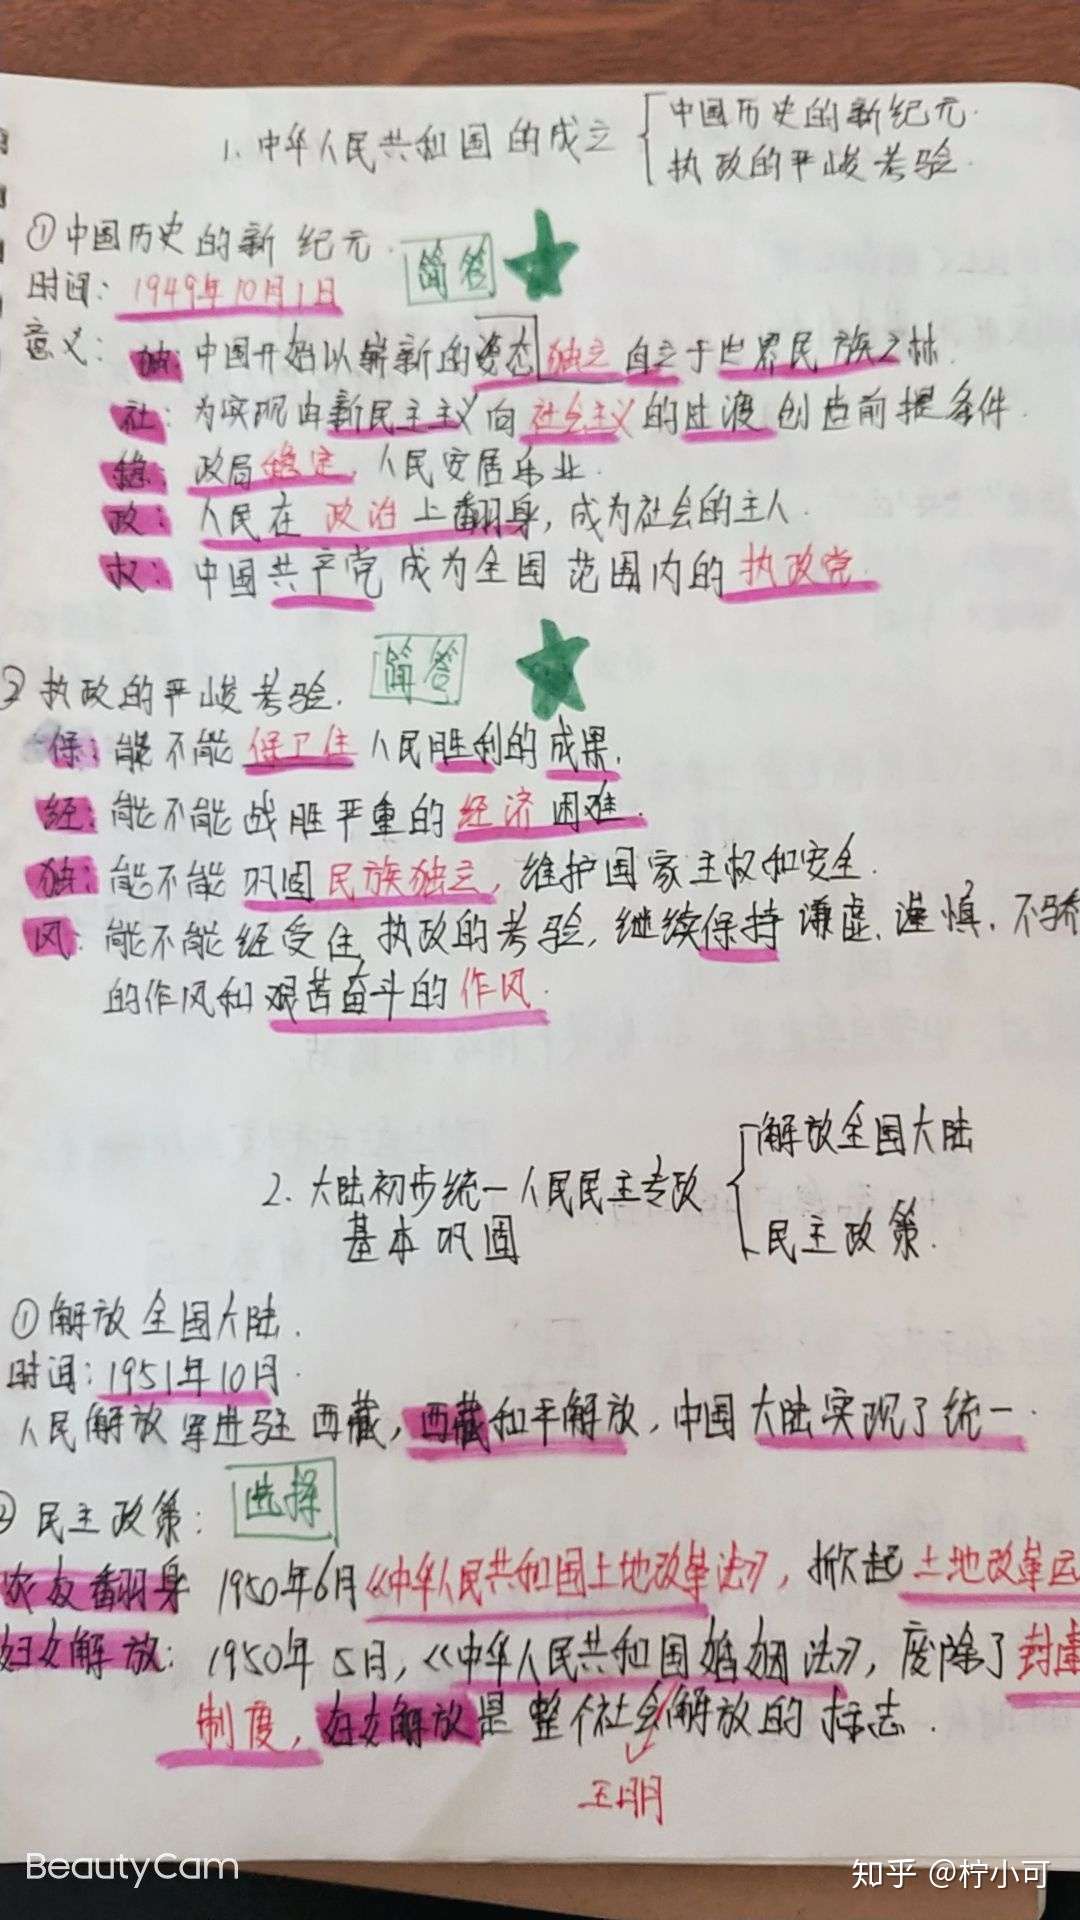 1. 中华人民共和国的成立 中国历史的新纪元.
执政的严峻考验.
①中国历史的新纪元. 简答
时间: 1949年10月1日
意义: 独: 中国开始以崭新的姿态独立自立于世界民族之林.
社: 为实现由新民主主义向社会主义的过渡创造前提条件.
稳: 政局稳定, 人民安居乐业.
政: 人民在政治上翻身, 成为社会的主人.
权: 中国共产党成为全国范围内的执政党.
② 执政的严峻考验. 简答
保: 能不能保卫住人民胜利的成果.
经: 能不能战胜严重的经济困难.
独: 能不能巩固民族独立, 维护国家主权和安全.
风: 能不能经受住执政的考验, 继续保持谦虚、谨慎、不骄
的作风和艰苦奋斗的作风.
2. 大陆初步统一人民民主专政 解放全国大陆
基本巩固 民主政策.
①解放全国大陆.
时间: 1951年10月.
人民解放军进驻西藏, 西藏和平解放, 中国大陆实现了统一.
② 民主政策: 选择
农友翻身 1950年6月《中华人民共和国土地改革法》, 掀起土地改革运
妇女解放: 1950年5日,《中华人民共和国婚姻法》, 废除了封建
制度, 妇女解放是整个社会解放的标志.
王明
BeautyCam
知乎 @柠小可